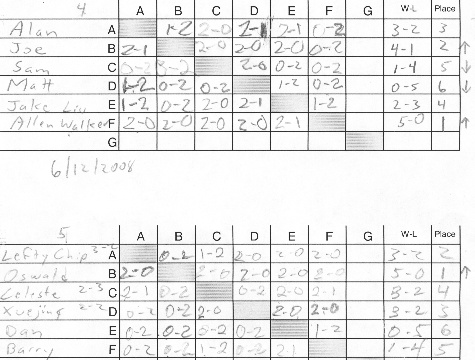 4
A B C D E F G W-L Place
Alan A 1-2 2-0 2-1 2-1 0-2 3-2 3
Joe B 2-1 2-0 2-0 2-0 0-2 4-1 2 ↑
Sam C 0-2 0-2 2-0 0-2 0-2 1-4 5 ↓
Matt D 1-2 0-2 0-2 1-2 0-2 0-5 6 ↓
Jake Liu E 1-2 0-2 2-0 2-1 1-2 2-3 4
Allen Walker F 2-0 2-0 2-0 2-0 2-1 5-0 1 ↑
G
6/12/2008
5
A B C D E F G W-L Place
Lefty Chip A 0-2 1-2 2-0 2-0 2-0 3-2 2
Oswald B 2-0 2-0 2-0 2-0 2-0 5-0 1 ↑
Celeste 2-3 C 2-1 0-2 0-2 2-0 2-1 3-2 4
Xuejing D 0-2 0-2 2-0 2-0 2-0 3-2 3
Dan E 0-2 0-2 0-2 0-2 1-2 0-5 6
Barry F 0-2 0-2 1-2 0-2 2-1 1-4 5